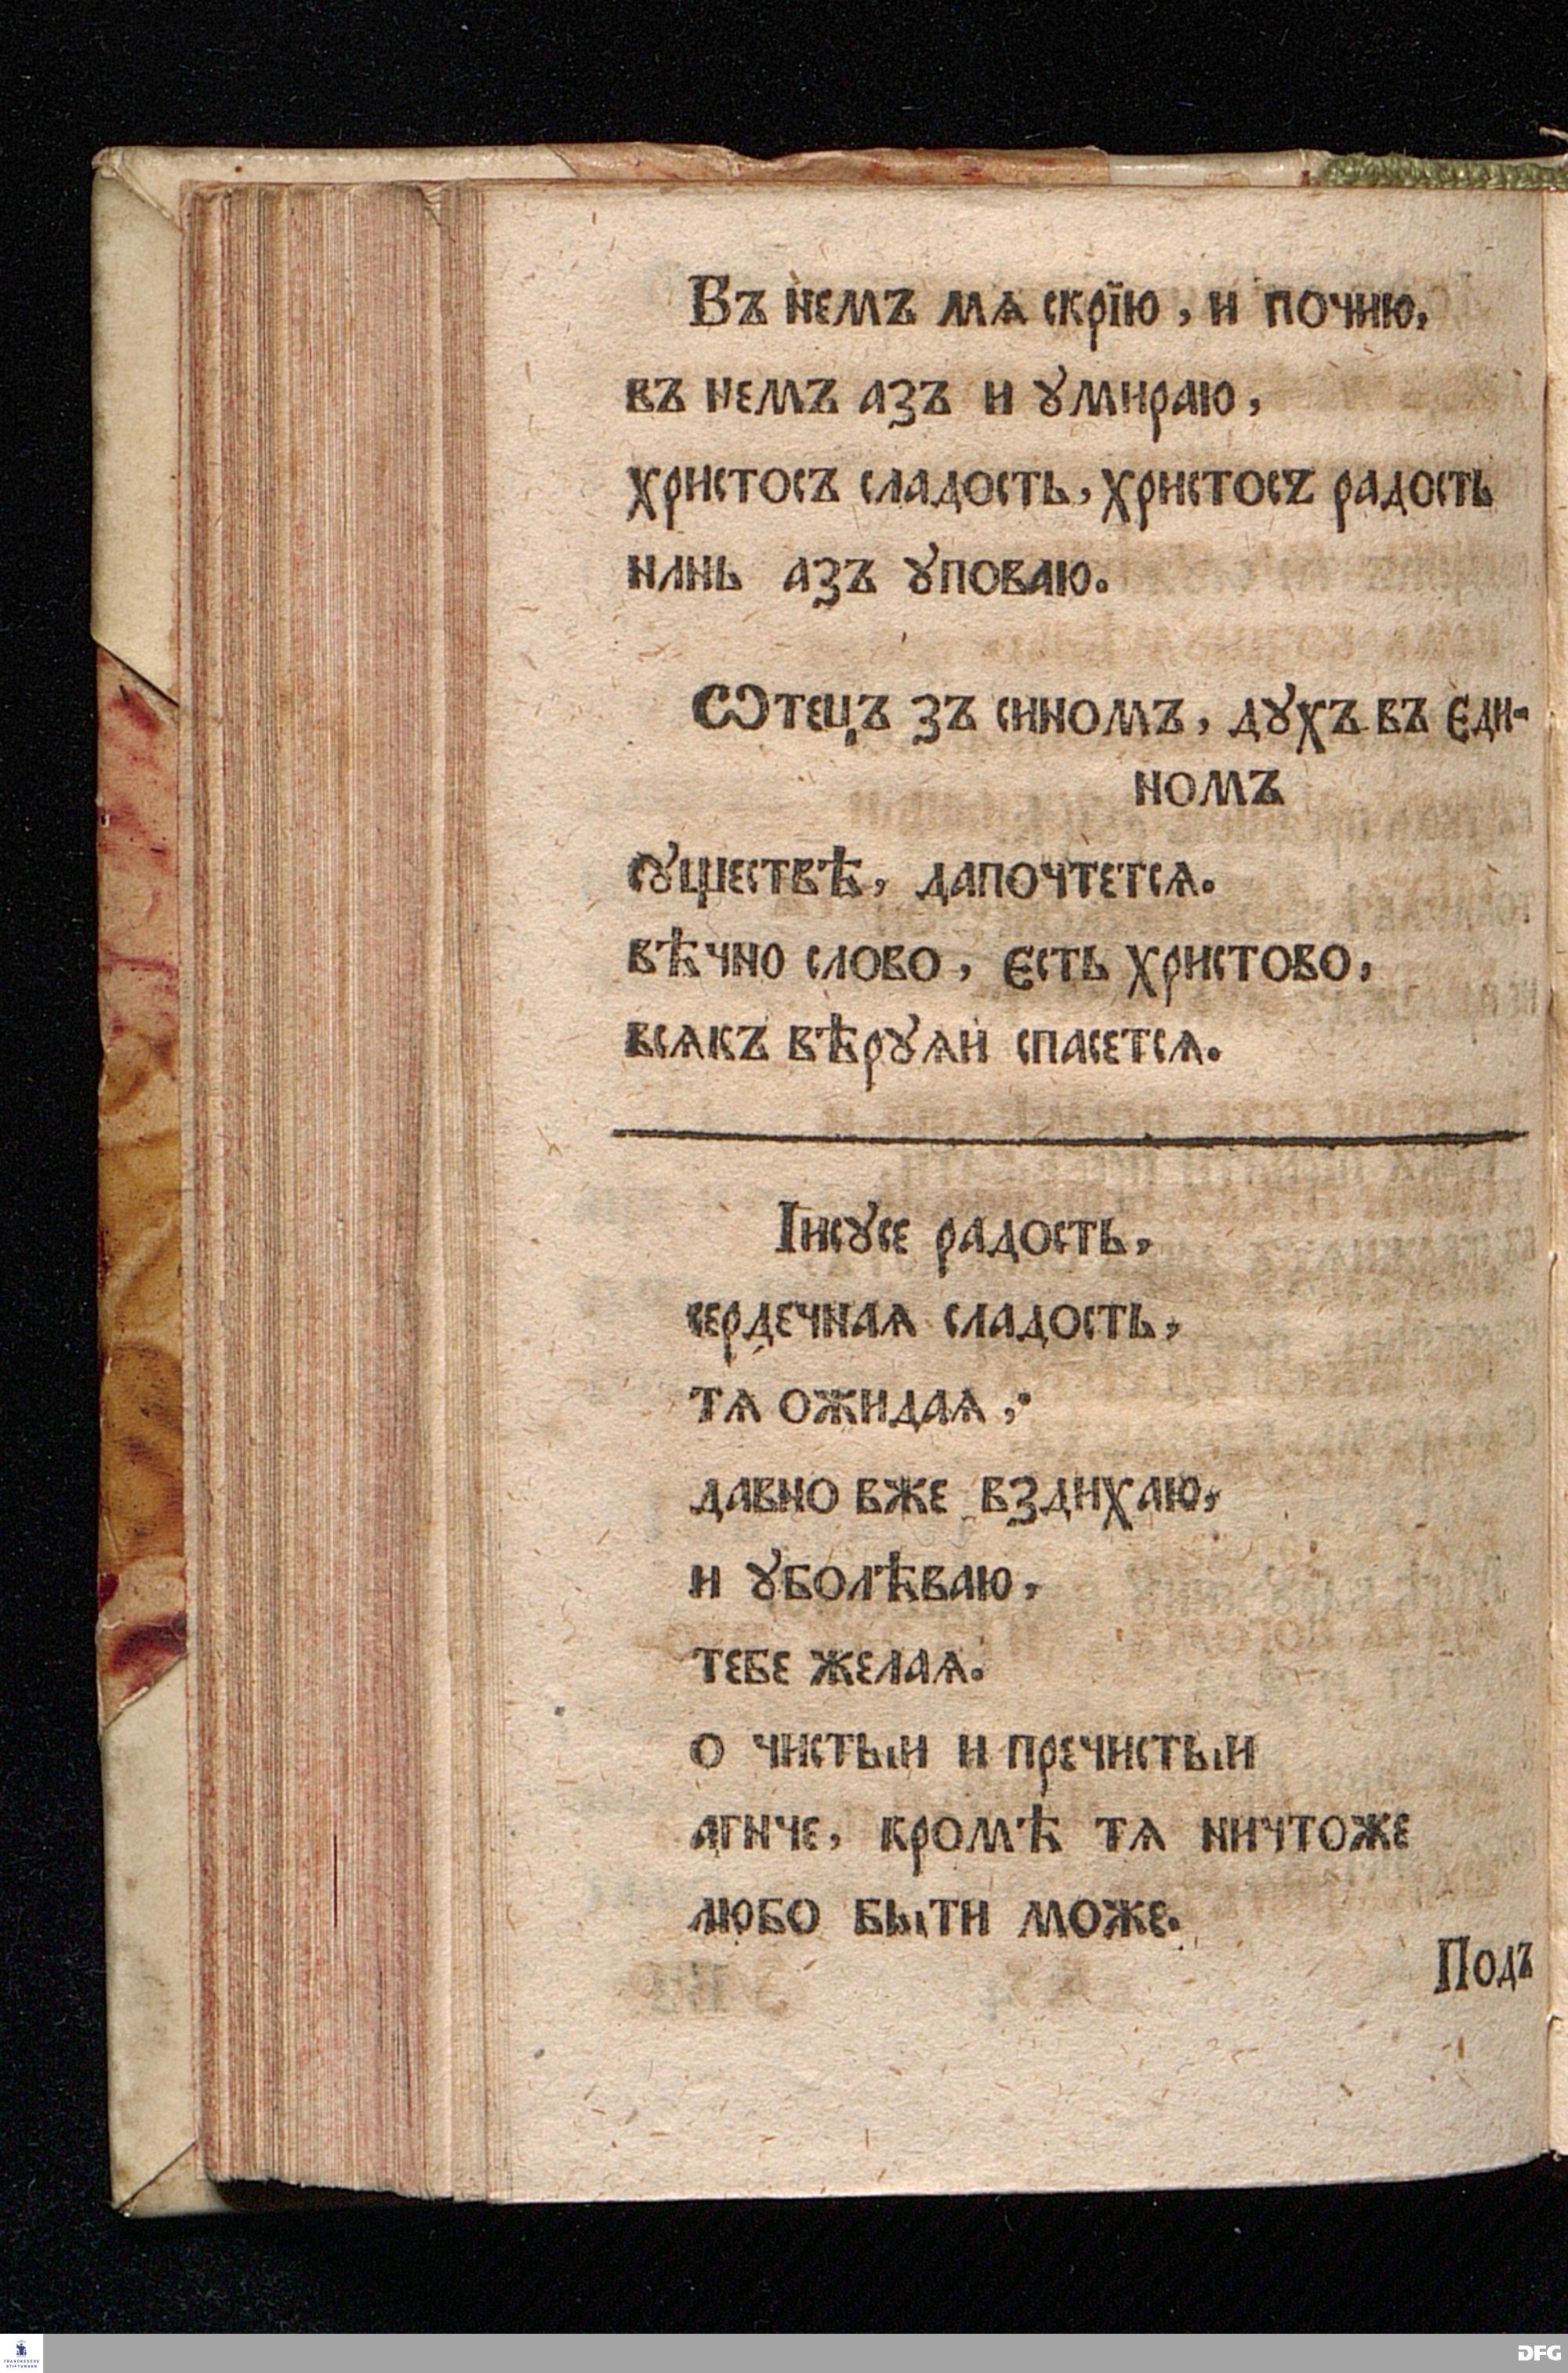 Въ немъ мѧ скрїю, и почию,
въ немъ азъ и ꙋмираю,
христосъ сладость, христосъ радость
нань азъ ꙋповаю.
Ѡтецъ зъ синомъ, дꙋхъ въ єди-
номъ
сꙋществѣ, дапочтетсѧ.
вѣчно слово, єсть христово,
всѧкъ вѣрꙋѧи спасетсѧ.
Іисꙋсе радость,
сердечнаѧ сладость,
тѧ ожидаѧ,
давно вже вздихаю,
и ꙋболѣваю,
тебе желаѧ.
о чистыи и пречистыи
агнче, кромѣ тѧ ничтоже
любо быти може.
Подъ
FRANCKESCHE
STIFTUNGEN
DFG